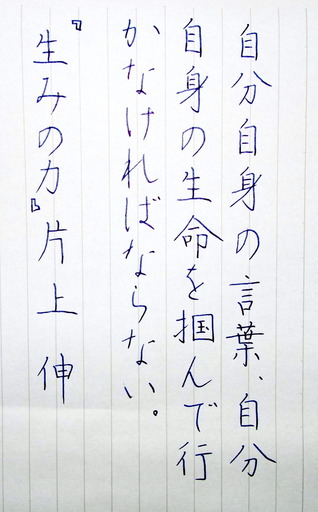 自分自身の言葉、自分
自身の生命を掴んで行
かなければならない。
『生みの力』片上 伸